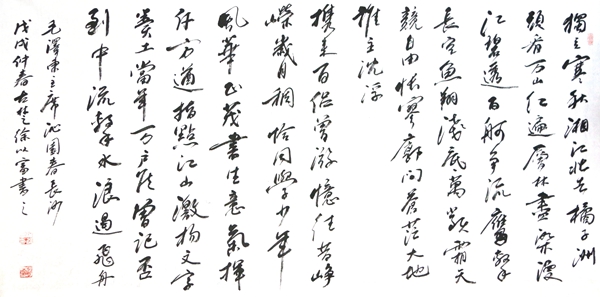 獨立寒秋湘江北去橘子洲
頭看万山红遍層林盡染漫
江碧透百舸争流鷹擊
长空魚翔淺底萬類霜天
競自由怅寥廓问蒼茫大地
谁主沈浮
携来百侣曾游憶往昔峥
嵘歲月稠恰同學少年
風華正茂書生意氣揮
斥方遒指點江山激扬文字
粪土當年万户侯曾记否
到中流擊水浪遏飛舟
毛澤東主席沁園春長沙
戊戌仲春古楚徐以富書之